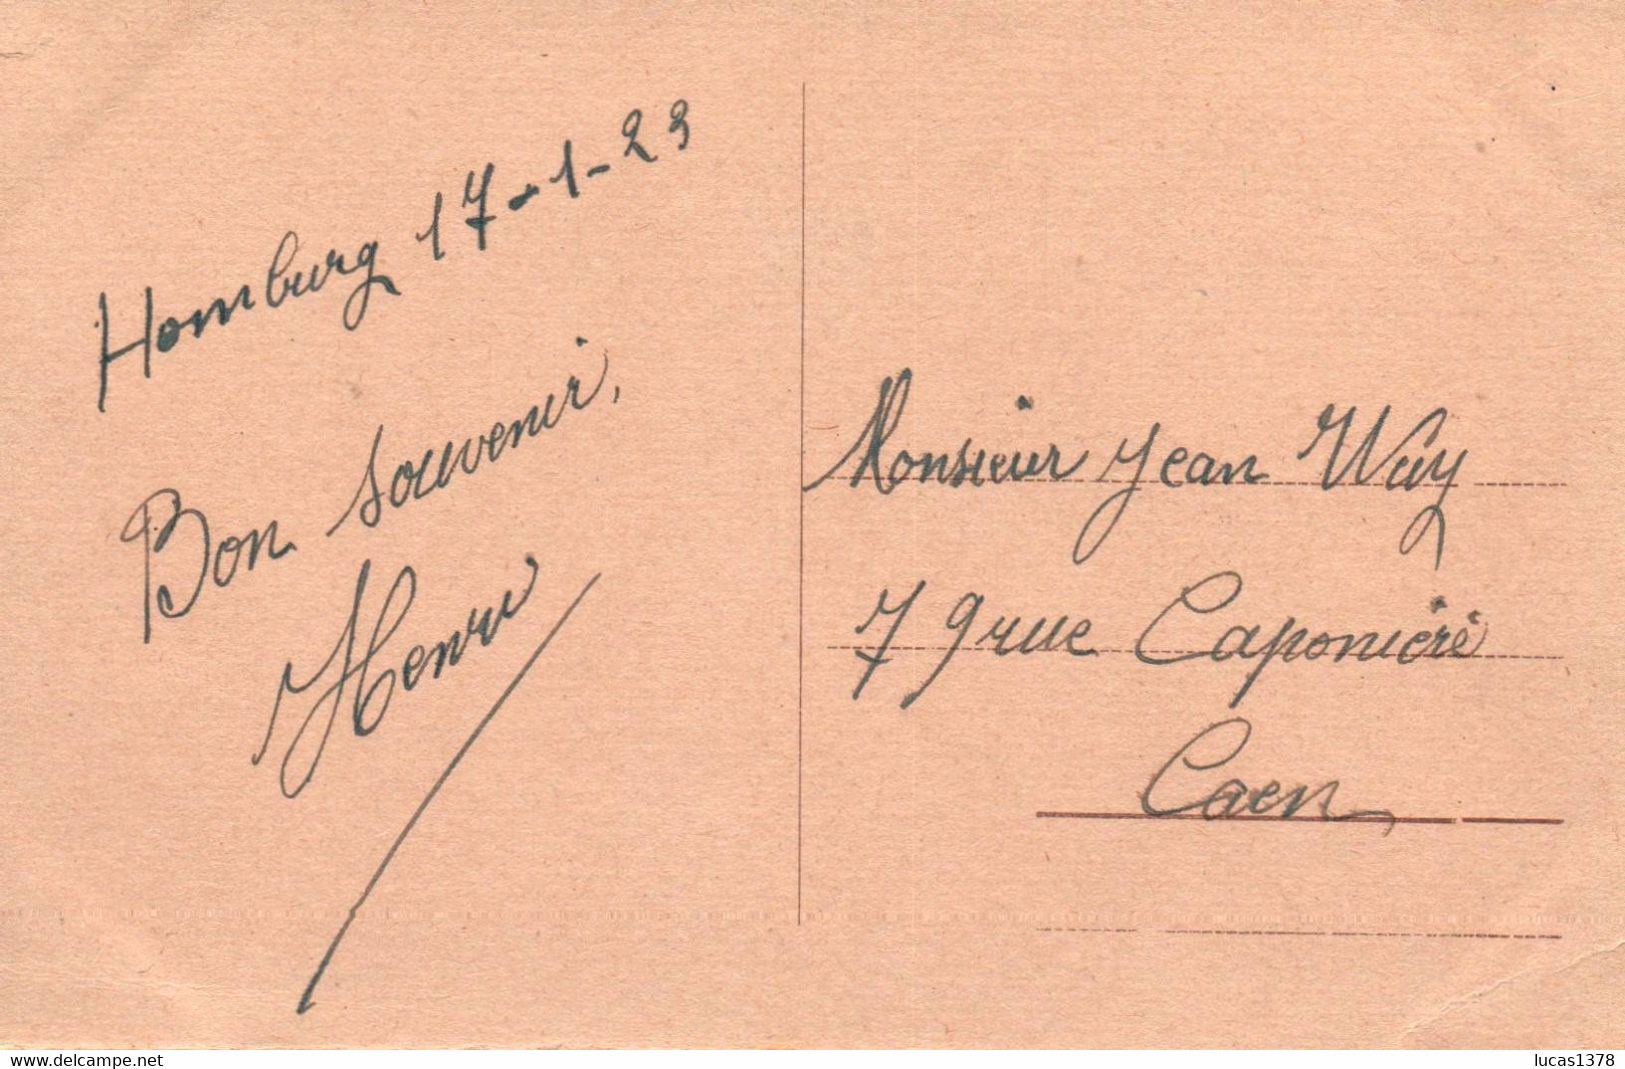 Homburg 17-1-23
Bon souvenir,
Henri
Monsieur Jean Way
79 rue Caponière
Caen
www.delcampe.net
lucas1378